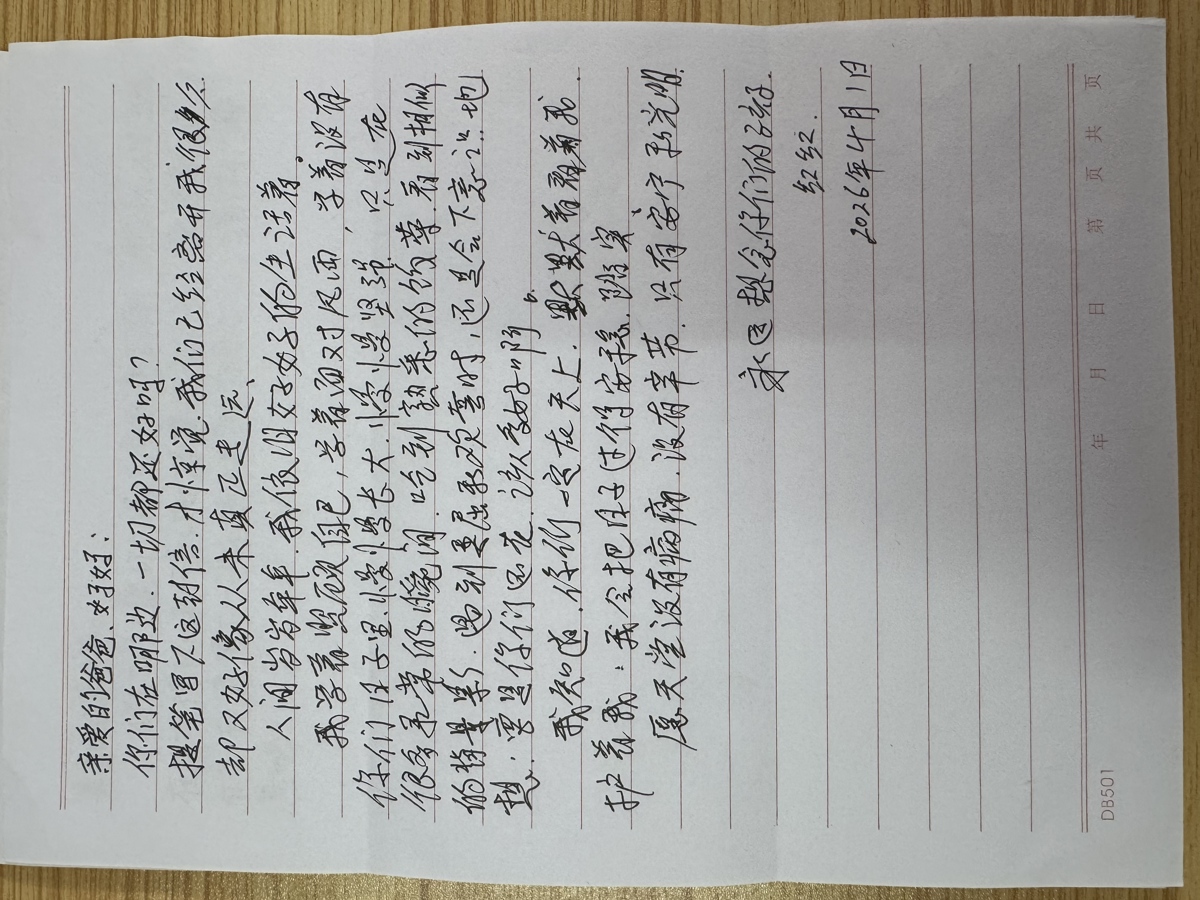 亲爱的爸爸、妈妈：
你们在哪边，一切都还好吗？
提笔写下这封信，才惊觉，我们已经离开我很久
却又好像从未真正走远、
人间岁岁年年，我依旧好好的生活着。
我学着照顾自己，学着面对风雨，学着没有
你们日子里、慢慢学长大，慢慢学坚强，只是在
很多寻常的瞬间，吃到熟悉的饭菜看到相似
的背影，遇到委屈和欢喜时，还是会下意识地
想，要是你们还在，该多好啊。
我知道，你们一定在天上，默默着看着我
护着我，我会把日子过得安稳、踏实、
愿天堂没有病痛，没有辛苦，只有安宁和光明。
永远想念你们的孩子
红红
2026年4月1日
年 月 日 第 页 共 页
DB501